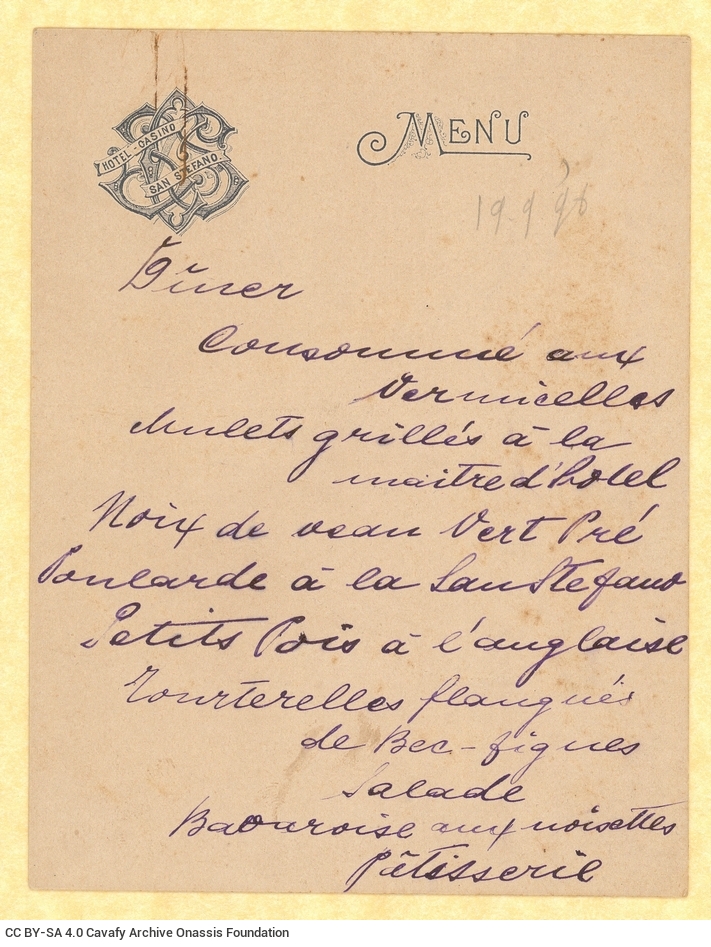 HOTEL-CASINO
SAN STEFANO.
MENU
19 9 96
Dîner
Consommé aux
Vermicelles
Mulets grillés à la
maitre d'hotel
Noix de veau Vert Pré
Poularde à la San Stefano
Petits Pois à l'anglaise
Tourterelles flanqués
de Bec-figues
Salade
Bavaroise aux noisettes
Pâtisserie
CC BY-SA 4.0 Cavafy Archive Onassis Foundation